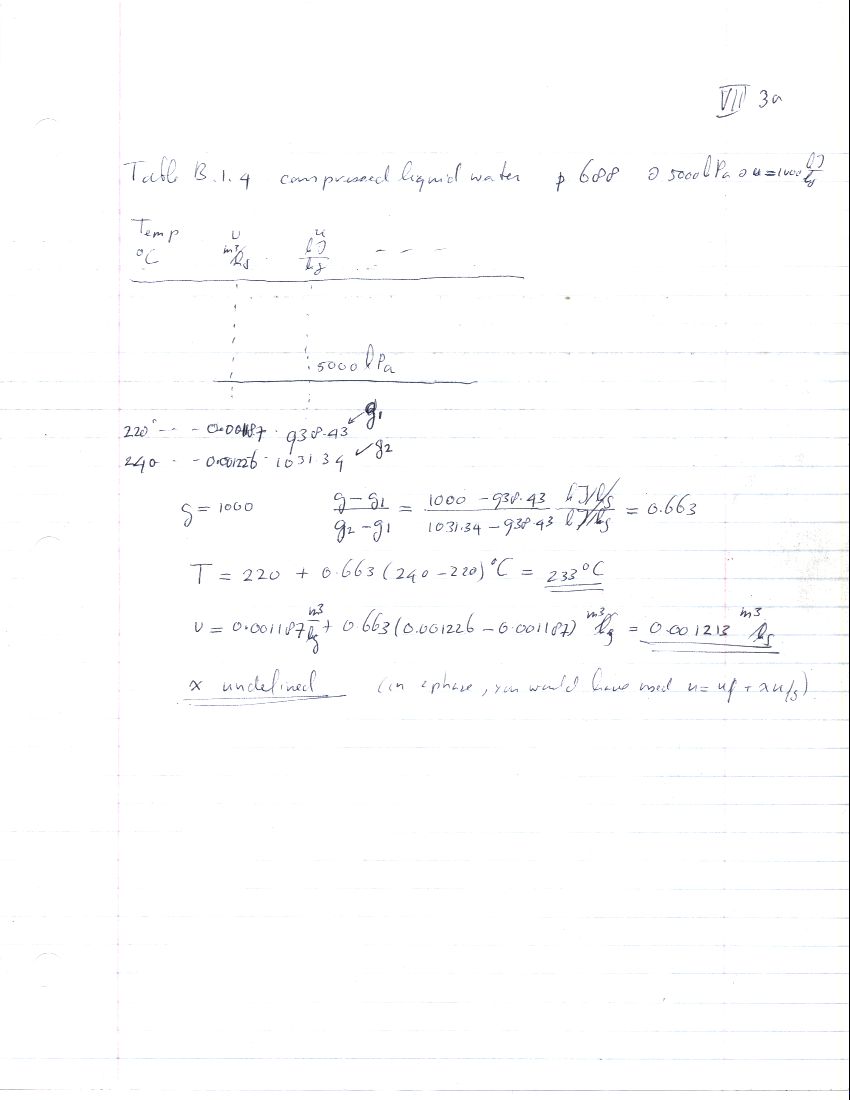 VII 3a
Table B.1.4 compressed liquid water p 688 @ 5000 kPa & u=1000 kJ/kg
Temp v u
°C m³/kg kJ/kg - - -
5000 kPa
220° -- - 0.001187 · 938.43 ← g₁
240 - - 0.001226 · 1031.34 ← g₂
g = 1000 (g-g₁)/(g₂-g₁) = (1000 - 938.43)/(1031.34 - 938.43) (kJ/kg)/(kJ/kg) = 0.663
T = 220 + 0.663 (240 - 220) °C = 233 °C
v = 0.001187 m³/kg + 0.663 (0.001226 - 0.001187) m³/kg = 0.001213 m³/kg
x undefined (in 2 phase, you would have used u = uf + x ufg)